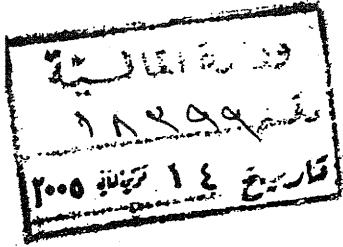 وزارة المالية
رقم ١٨٢٩٩
تاريخ ١٤ تشرين الثاني ٢٠٠٥